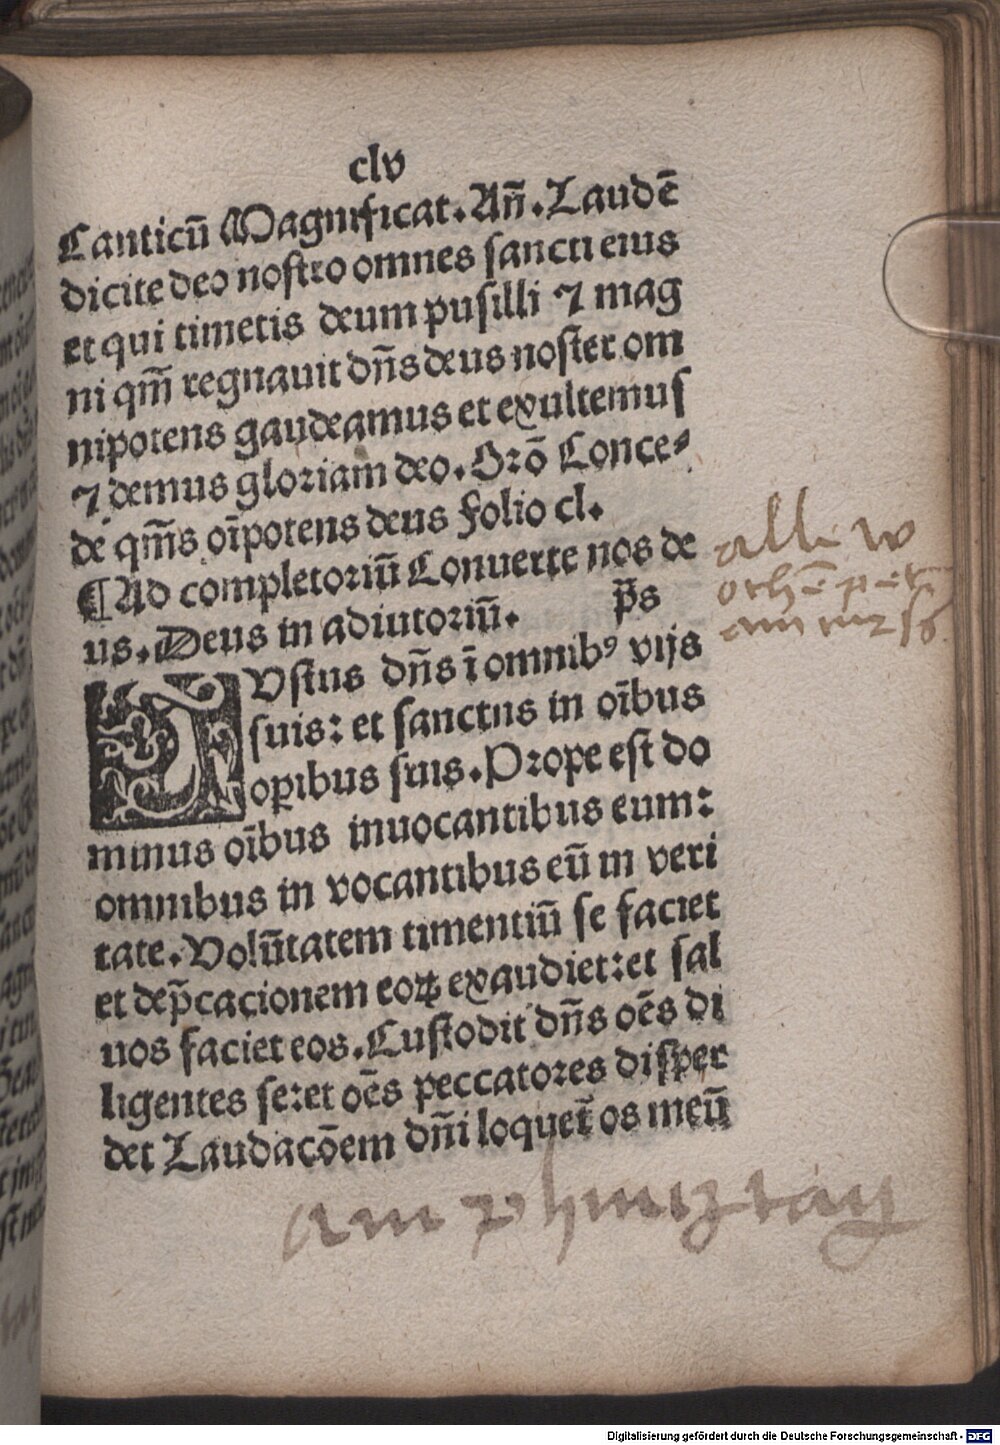 clv
Canticū Magnificat. Añ. Laudē
dicite deo nostro omnes sancti eius
et qui timetis deum pusilli ⁊ mag
ni qm̄ regnauit dn̄s deus noster om
nipotens gaudeamus et exultemus
⁊ demus gloriam deo. Orō Conce⸗
de qm̄s oīpotens deus Folio cl.
¶Ad completoriū Conuerte nos de
us. Deus in adiutoriū. p̄s
IVstus dn̄s ī omnibꝰ vijs
suis: et sanctus in oībus
oꝑibus suis. Prope est do
minus oībus inuocantibus eum:
omnibus in vocantibus eū in veri
tate. Volūtatem timentiū se faciet
et dep̄cacionem eoꝝ exaudiet: et sal
uos faciet eos. Custodit dn̄s oēs di
ligentes se: et oēs peccatores disper
det Laudacōem dn̄i loquet̄ os meū
alle w
am phinztag
Digitalisierung gefördert durch die Deutsche Forschungsgemeinschaft - DFG